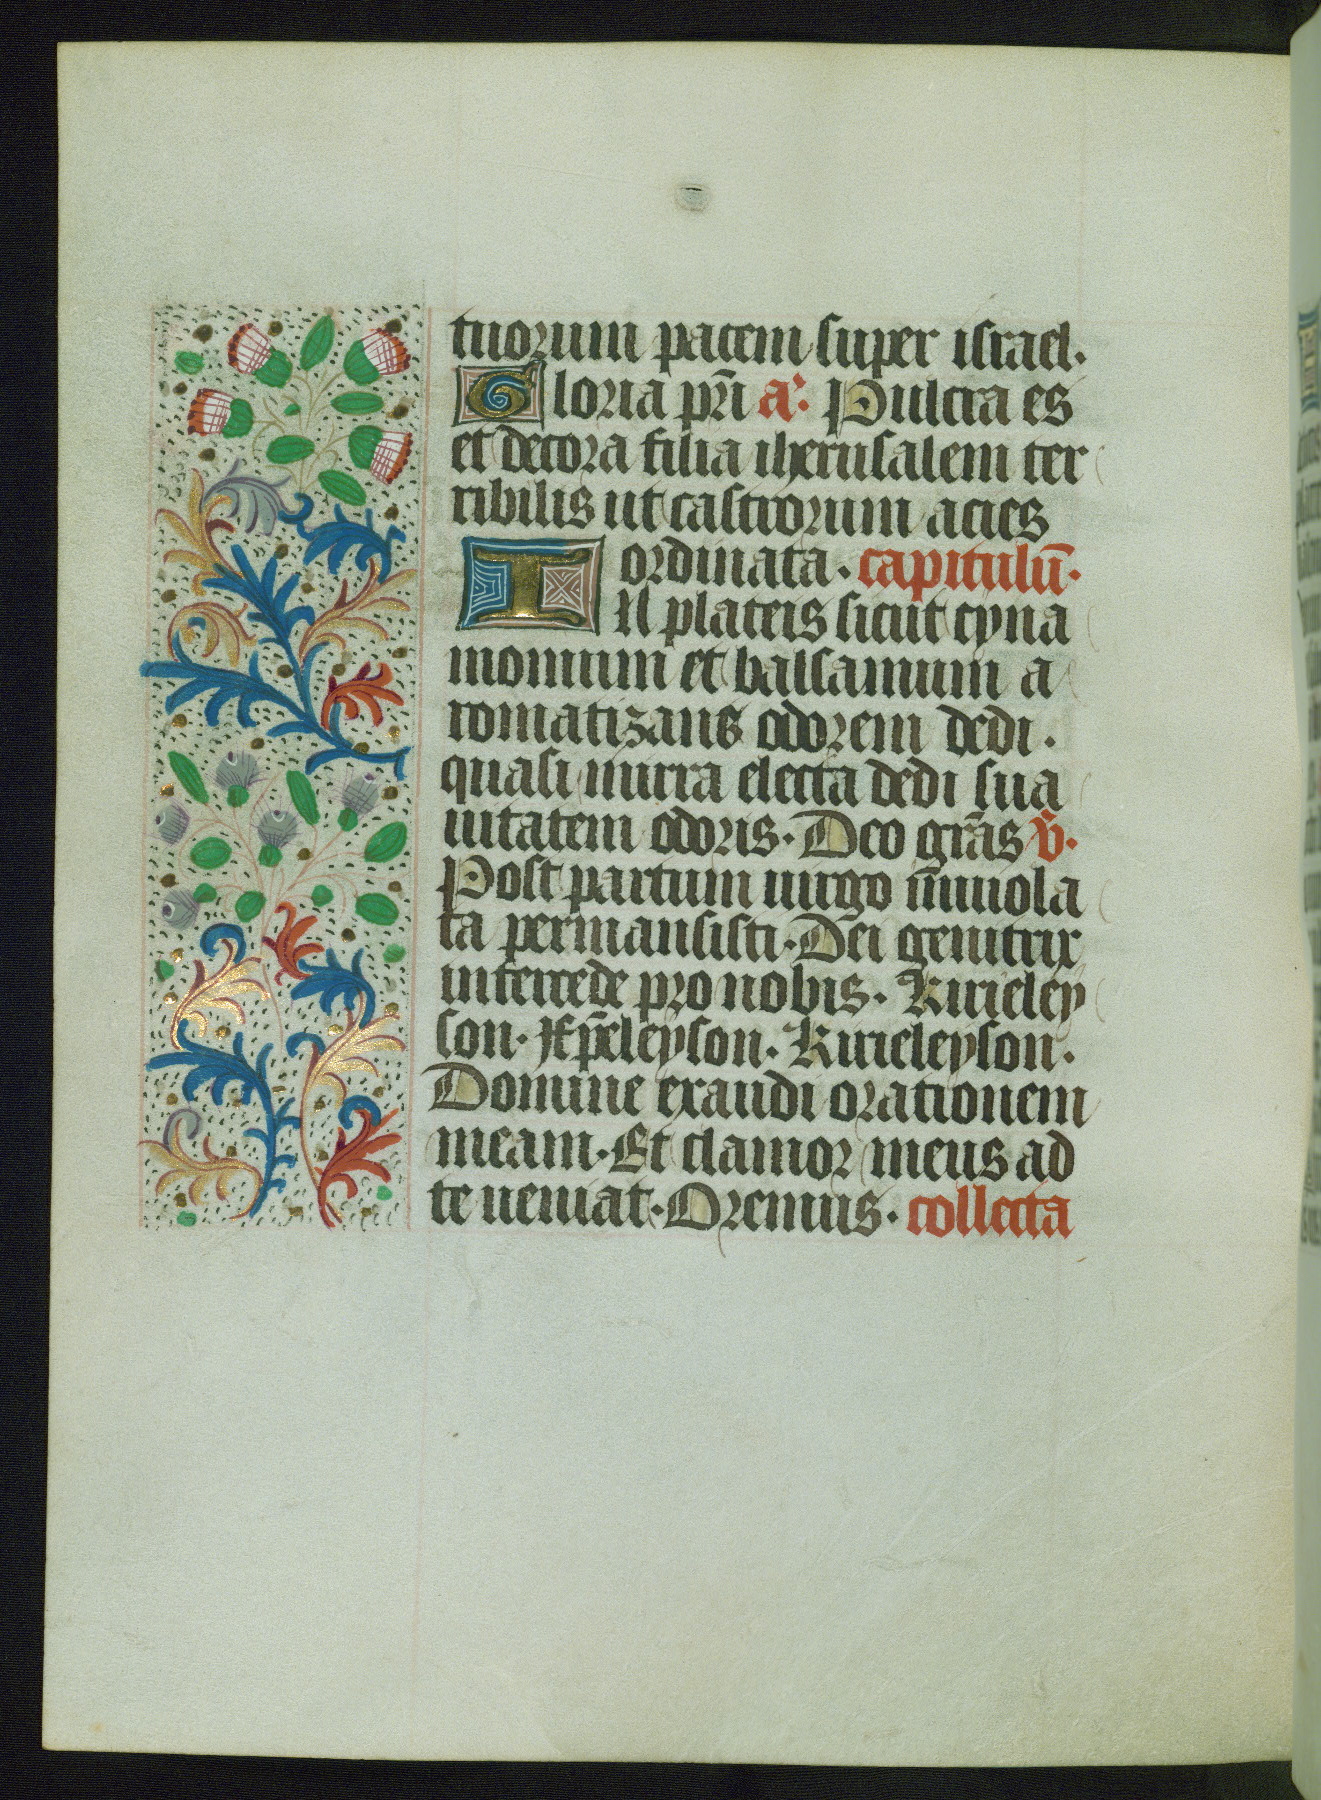 tuorum pacem super israel.
Gloria pr̄i a͛. Pulcra es
et decora filia iherusalem ter
ribilis ut castrorum acies
ordinata. capitulū.
In plateis sicut cyna
momum et balsamum a
romatizans odorem dedi.
quasi mirra electa dedi sua
uitatem odoris. Deo grās v̄.
Post partum uirgo īnuiola
ta permansisti. Dei genitrix
intercede pro nobis. Kyrieley
son. Xp̄eleyson. Kyrieleyson.
Domine exaudi orationem
meam. Et clamor meus ad
te ueniat. Oremus. collecta